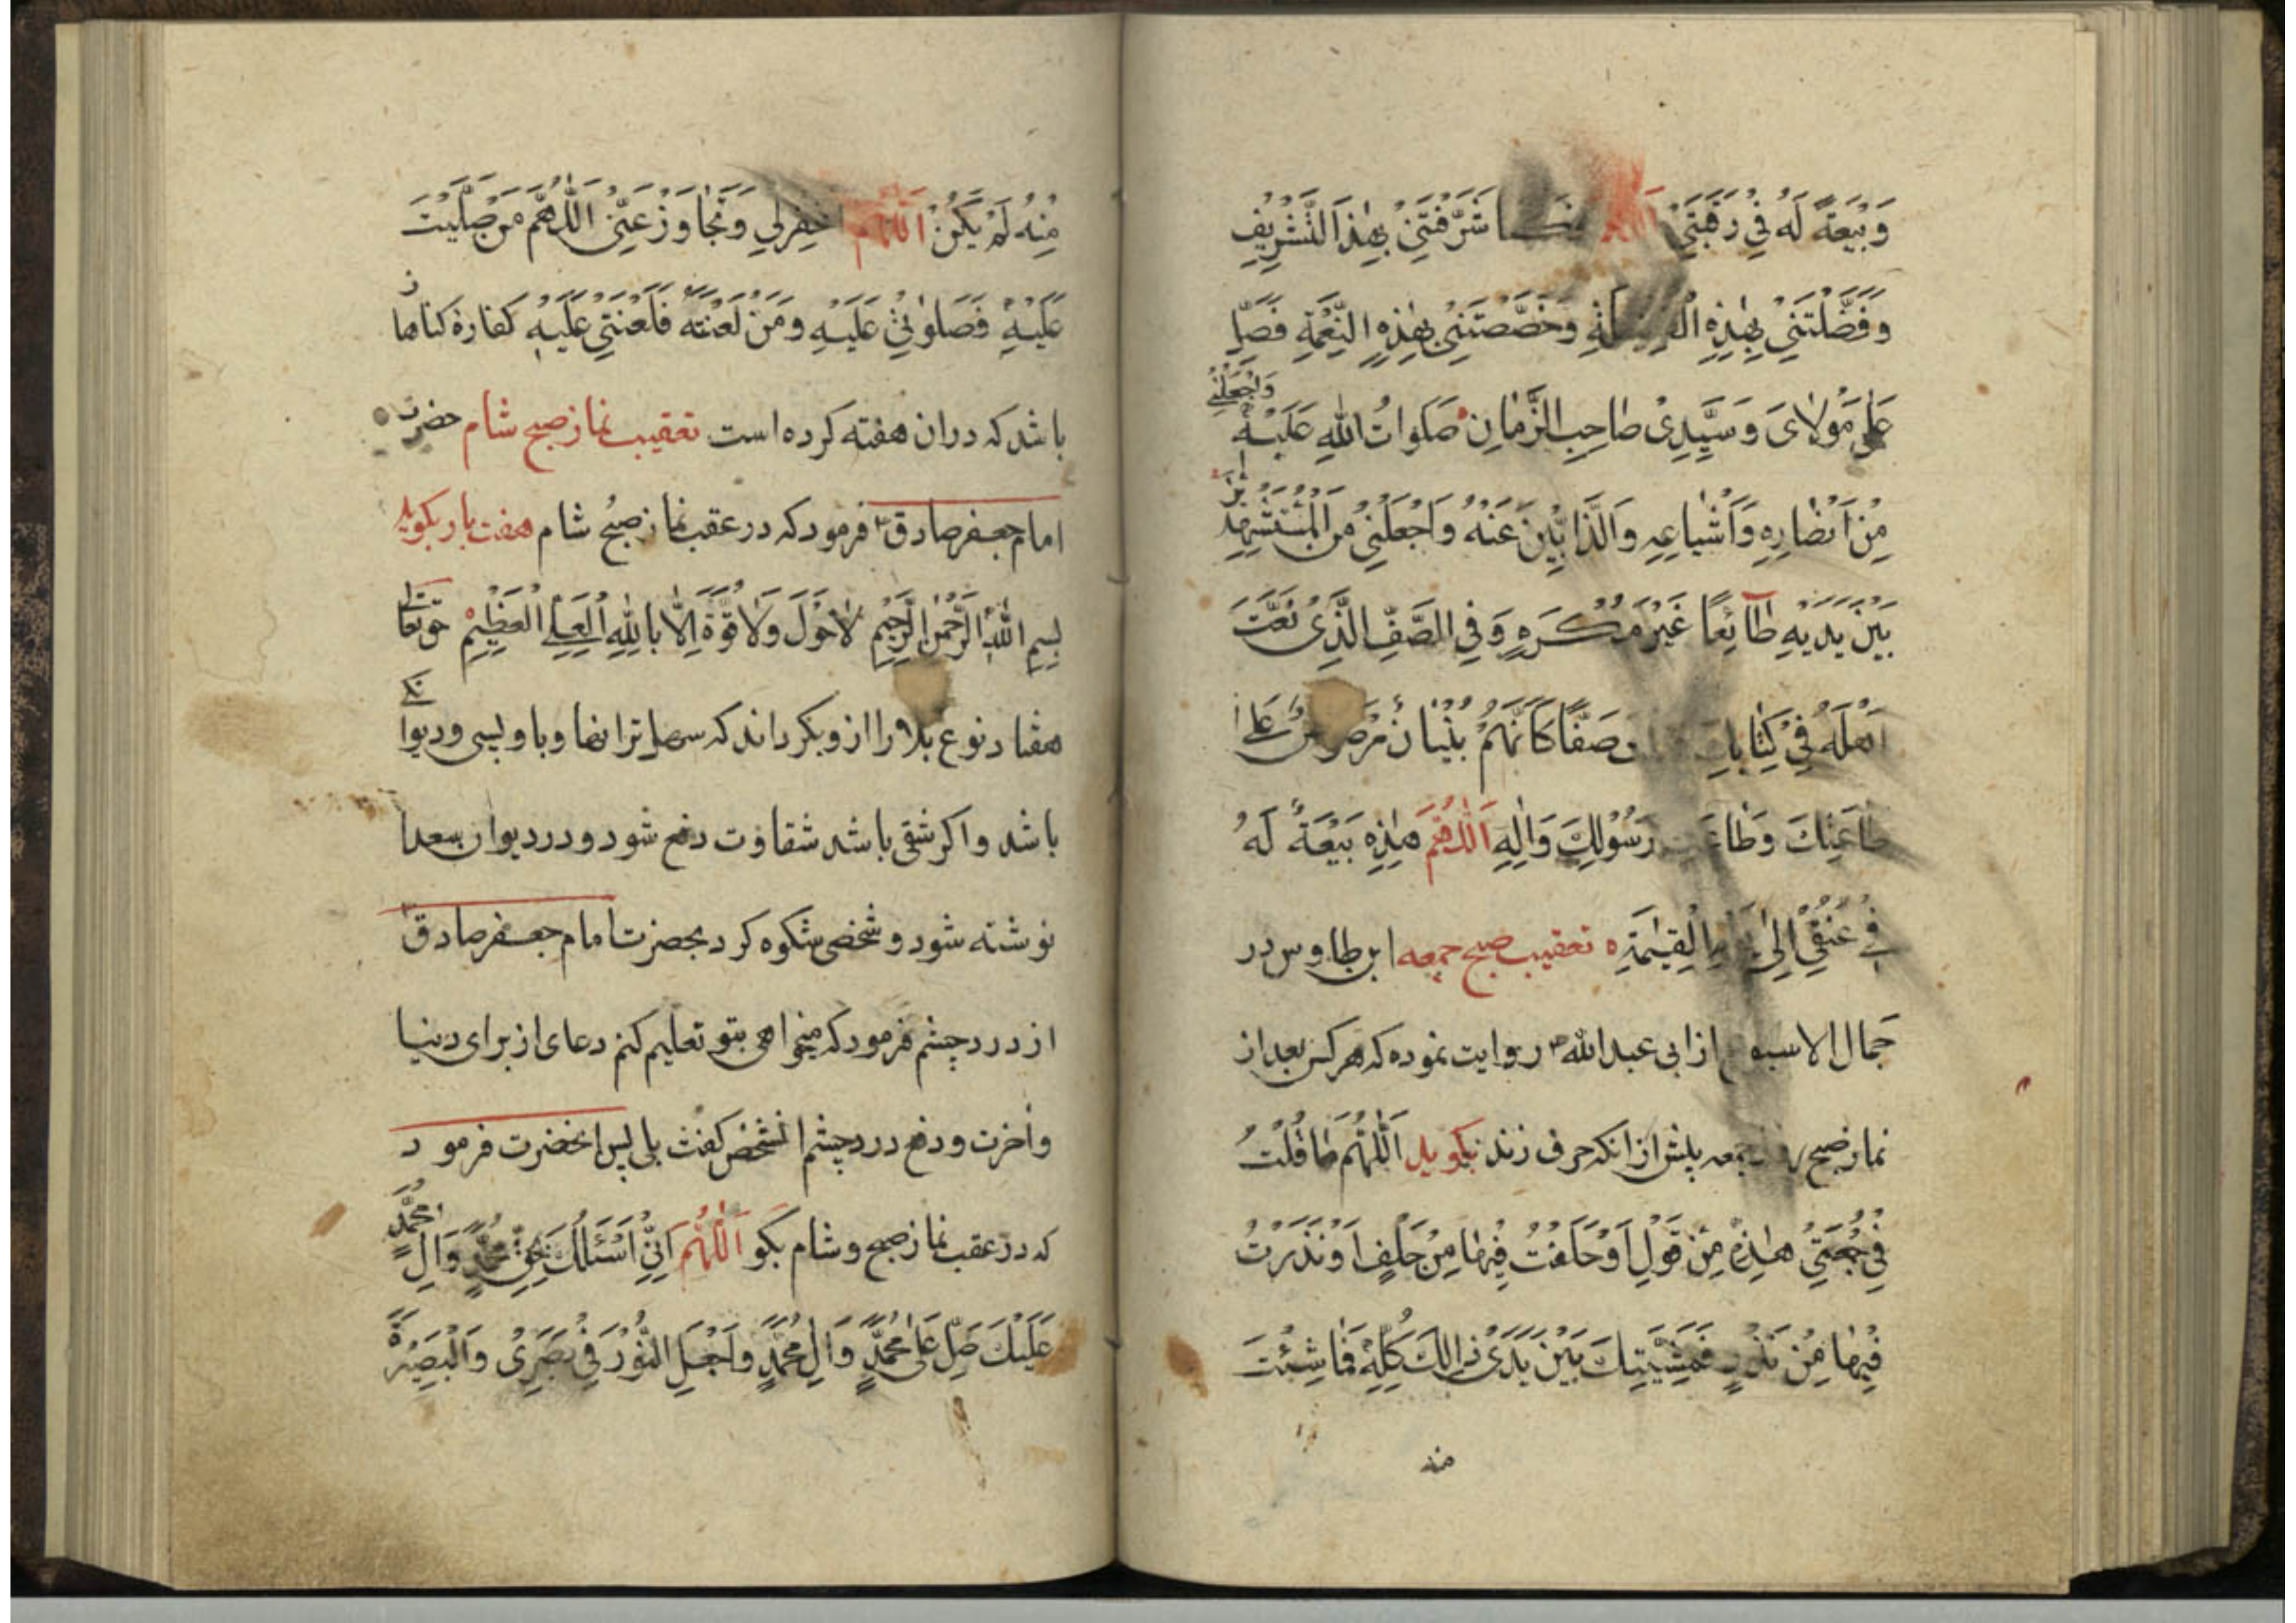 وَبَيْعَةً لَهُ فِي رَقَبَتِي اَللّٰهُمَّ كَمَا شَرَّفْتَنِي بِهٰذَا التَّشْرِيفِ
وَفَضَّلْتَنِي بِهٰذِهِ الْفَضِيلَةِ وَخَصَّصْتَنِي بِهٰذِهِ النِّعْمَةِ فَصَلِّ
عَلٰى مَوْلَايَ وَسَيِّدِي صَاحِبِ الزَّمَانِ صَلَوَاتُ اللّٰهِ عَلَيْهِ وَاجْعَلْنِي
مِنْ اَنْصَارِهِ وَاَشْيَاعِهِ وَالذَّابِّينَ عَنْهُ وَاجْعَلْنِي مِنَ الْمُسْتَشْهَدِينَ
بَيْنَ يَدَيْهِ طَآئِعًا غَيْرَ مُكْرَهٍ وَفِي الصَّفِّ الَّذِي نَعَتَّ
اَهْلَهُ فِي كِتَابِكَ صَفًّا كَاَنَّهُمْ بُنْيَانٌ مَرْصُوصٌ عَلٰى
طَاعَتِكَ وَطَاعَتِ رَسُولِكَ وَاٰلِهِ اَللّٰهُمَّ هٰذِهِ بَيْعَةٌ لَهُ
فِي عُنُقِي اِلٰى يَوْمِ الْقِيٰمَةِ ه تعقیب صبح جمعه ابن طاوس در
جمال الاسبوع از ابی عبدالله ع روایت نموده که هر کس بعد از
نماز صبح روز جمعه پیش از آنکه حرف زند بکوید اَللّٰهُمَّ مَا قُلْتُ
فِي جُمُعَتِي هٰذِهِ مِنْ قَوْلٍ اَوْ حَلَفْتُ فِيهَا مِنْ حَلْفٍ اَوْ نَذَرْتُ
فِيهَا مِنْ نَذْرٍ فَمَشِيَّتِكَ بَيْنَ يَدَيْ ذٰلِكَ كُلِّهِ فَمَا شِئْتَ
منه
مِنْهُ لَمْ يَكُنْ اَللّٰهُمَّ اغْفِرْ لِي وَتَجَاوَزْ عَنِّي اَللّٰهُمَّ مَنْ صَلَّيْتَ
عَلَيْهِ فَصَلَوٰتِي عَلَيْهِ وَمَنْ لَعَنْتَهُ فَلَعْنَتِي عَلَيْهِ کفاره کناها
باشد که دران هفته کرده است تعقیب نماز صبح شام حضرت
امام جعفر صادق ع فرمود که در عقب نماز صبح شام هفت بار بکوید
بِسْمِ اللّٰهِ الرَّحْمٰنِ الرَّحِيمِ لَا حَوْلَ وَلَا قُوَّةَ اِلَّا بِاللّٰهِ الْعَلِيِّ الْعَظِيمِ حق تعالی
هفتاد نوع بلا را از و بکرداند که سهلترانها و با و پیسی و دیوانکی
باشد و اکر شقی باشد شقاوت دفع شود و در دیوان سعدا
نوشته شود و شخصی شکوه کرد بحضرت امام جعفر صادق ع
از درد چشم فرمود که میخواهی بتو تعلیم کنم دعای از برای دنیا
و آخرت و دفع درد چشم انشخص کفت بلی پس انحضرت فرمود
که در عقب نماز صبح و شام بکو اَللّٰهُمَّ اِنِّي اَسْئَلُكَ بِحَقِّ مُحَمَّدٍ وَاٰلِ مُحَمَّدٍ
عَلَيْكَ صَلِّ عَلٰى مُحَمَّدٍ وَاٰلِ مُحَمَّدٍ وَاجْعَلِ النُّورَ فِي بَصَرِي وَالْبَصِيرَةَ